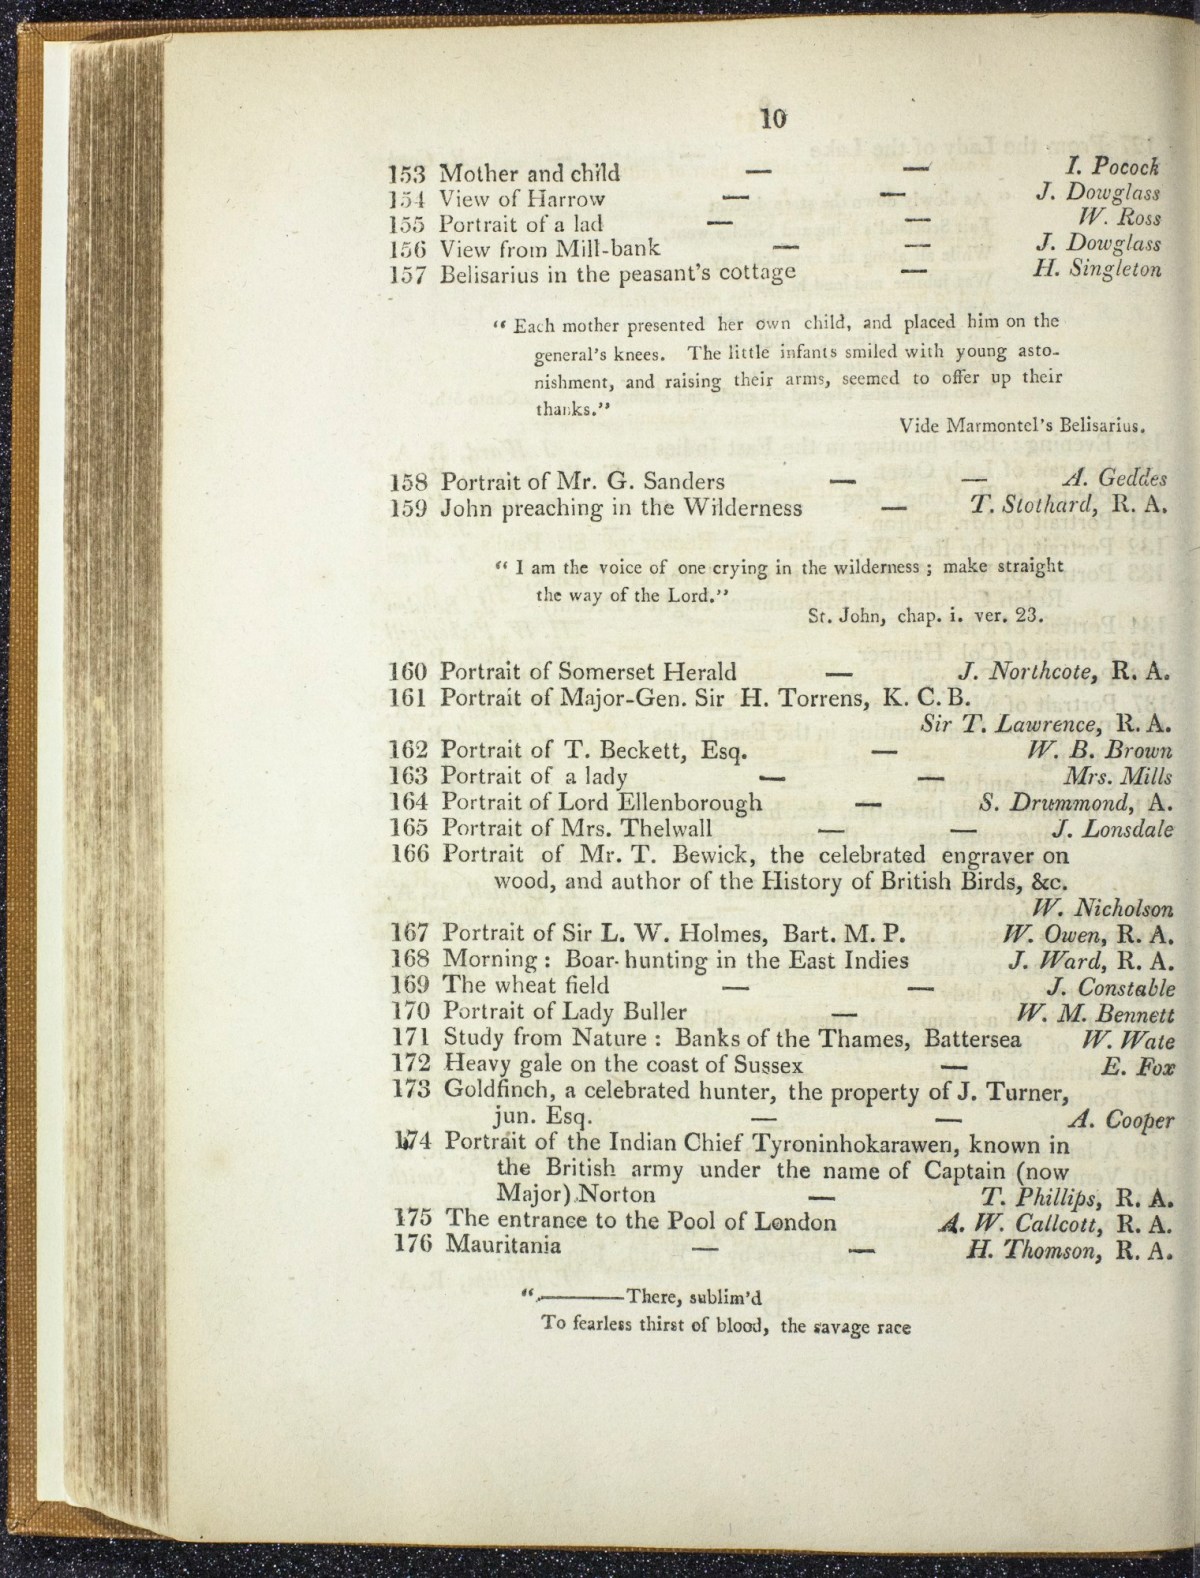 10
153 Mother and child — — I. Pocock
154 View of Harrow — — J. Dowglass
155 Portrait of a lad — — W. Ross
156 View from Mill-bank — — J. Dowglass
157 Belisarius in the peasant's cottage — H. Singleton
“ Each mother presented her own child, and placed him on the
general's knees. The little infants smiled with young asto-
nishment, and raising their arms, seemed to offer up their
thanks.”
Vide Marmontel's Belisarius.
158 Portrait of Mr. G. Sanders — — A. Geddes
159 John preaching in the Wilderness — T. Stothard, R. A.
“ I am the voice of one crying in the wilderness ; make straight
the way of the Lord.”
St. John, chap. i. ver. 23.
160 Portrait of Somerset Herald — J. Northcote, R. A.
161 Portrait of Major-Gen. Sir H. Torrens, K. C. B.
Sir T. Lawrence, R. A.
162 Portrait of T. Beckett, Esq. — W. B. Brown
163 Portrait of a lady — — Mrs. Mills
164 Portrait of Lord Ellenborough — S. Drummond, A.
165 Portrait of Mrs. Thelwall — — J. Lonsdale
166 Portrait of Mr. T. Bewick, the celebrated engraver on
wood, and author of the History of British Birds, &c.
W. Nicholson
167 Portrait of Sir L. W. Holmes, Bart. M. P. W. Owen, R. A.
168 Morning : Boar-hunting in the East Indies J. Ward, R. A.
169 The wheat field — — J. Constable
170 Portrait of Lady Buller — W. M. Bennett
171 Study from Nature : Banks of the Thames, Battersea W. Wate
172 Heavy gale on the coast of Sussex — E. Fox
173 Goldfinch, a celebrated hunter, the property of J. Turner,
jun. Esq. — — A. Cooper
174 Portrait of the Indian Chief Tyroninhokarawen, known in
the British army under the name of Captain (now
Major) Norton — T. Phillips, R. A.
175 The entrance to the Pool of London A. W. Callcott, R. A.
176 Mauritania — — H. Thomson, R. A.
“ ———There, sublim'd
To fearless thirst of blood, the savage race